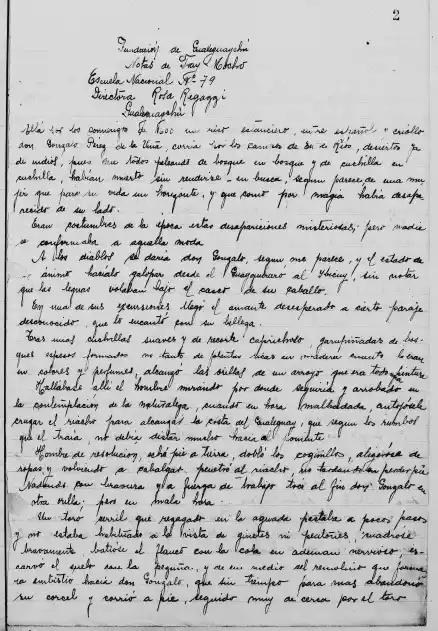 2
Fundación de Gualeguaychú
Notas de Fray Mocho
Escuela Nacional Nº 79
Directora Rosa Regazzi
Gualeguaychú
Allá por los comienzos de 1800 un rico estanciero, entre español y criollo
don Gonzalo Perez de la Viña, corria por los campos de En de Rios, desiertos ya
de indios, pues que todos peleando de bosque en bosque y de cuchilla en
cuchilla, habian muerto sin rendirse en busca, segun parece, de una mu
jer que para su vida un horizonte, y que como por magia habia desapa
recido de su lado.
Eran costumbres de la época estas desapariciones misteriosas; pero nadie
se conformaba a aquella moda.
A los diablos se daria don Gonzalo, segun me parece, y el estado de
ánimo haciale galopar desde el Guayquiraró al Ybicuy, sin notar
que las leguas volaban bajo el casco de su caballo.
En una de sus excursiones llegó el amante desesperado a cierto paraje
desconocido, que lo encantó con su belleza.
Tras unas cuchillas suaves y de recorte caprichoso, garapiñadas de bos-
ques espesos formados no tanto de plantas ricas en madera cuanto lo eran
en colores y perfumes, alcanzo las orillas de un arroyo que era todo
Hallábase allí el hombre mirando por donde seguiria y arrobado en
la contemplacion de la naturaleza, cuando en hora malhadada, antojósele
cruzar el riacho para alcanzar la costa del Gualeguay, que segun los rumbos
que él traia, no debia distar mucho hacia el poniente.
Hombre de resolucion, echó pie a tierra, dobló los cojinillos, aligeróse de
ropas y volviendo a cabalgar penetró al riacho, no tardando en perder pie
Nadando con bravura y a fuerza de trabajo tocó al fin don Gonzalo en
otra orilla; pero en mala hora.
Un toro cerril que rezagado en la aguada pastaba a pocos pasos
y no estaba habituado a la vista de ginetes ni peatones, cuadróse
bravamente batióse el flanco con la cola en ademan nervioso, es-
carvó el suelo con la pezuña y de en medio del remolino que formara
embistió hacia don Gonzalo, que sin tiempo para mas abandonó
su corcel y corrió a pie, seguido muy de cerca por el toro